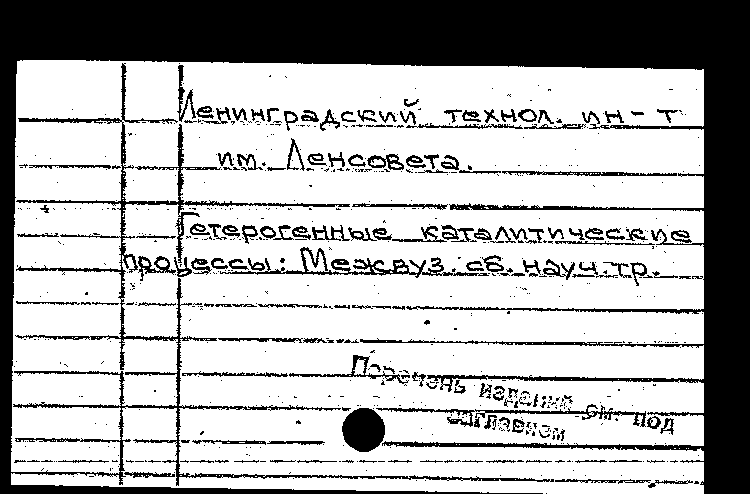 Ленинградский технол. ин-т
им. Ленсовета.
Гетерогенные каталитические
процессы: Межвуз. сб. науч. тр.
Перечень изданий см. под
заглавием